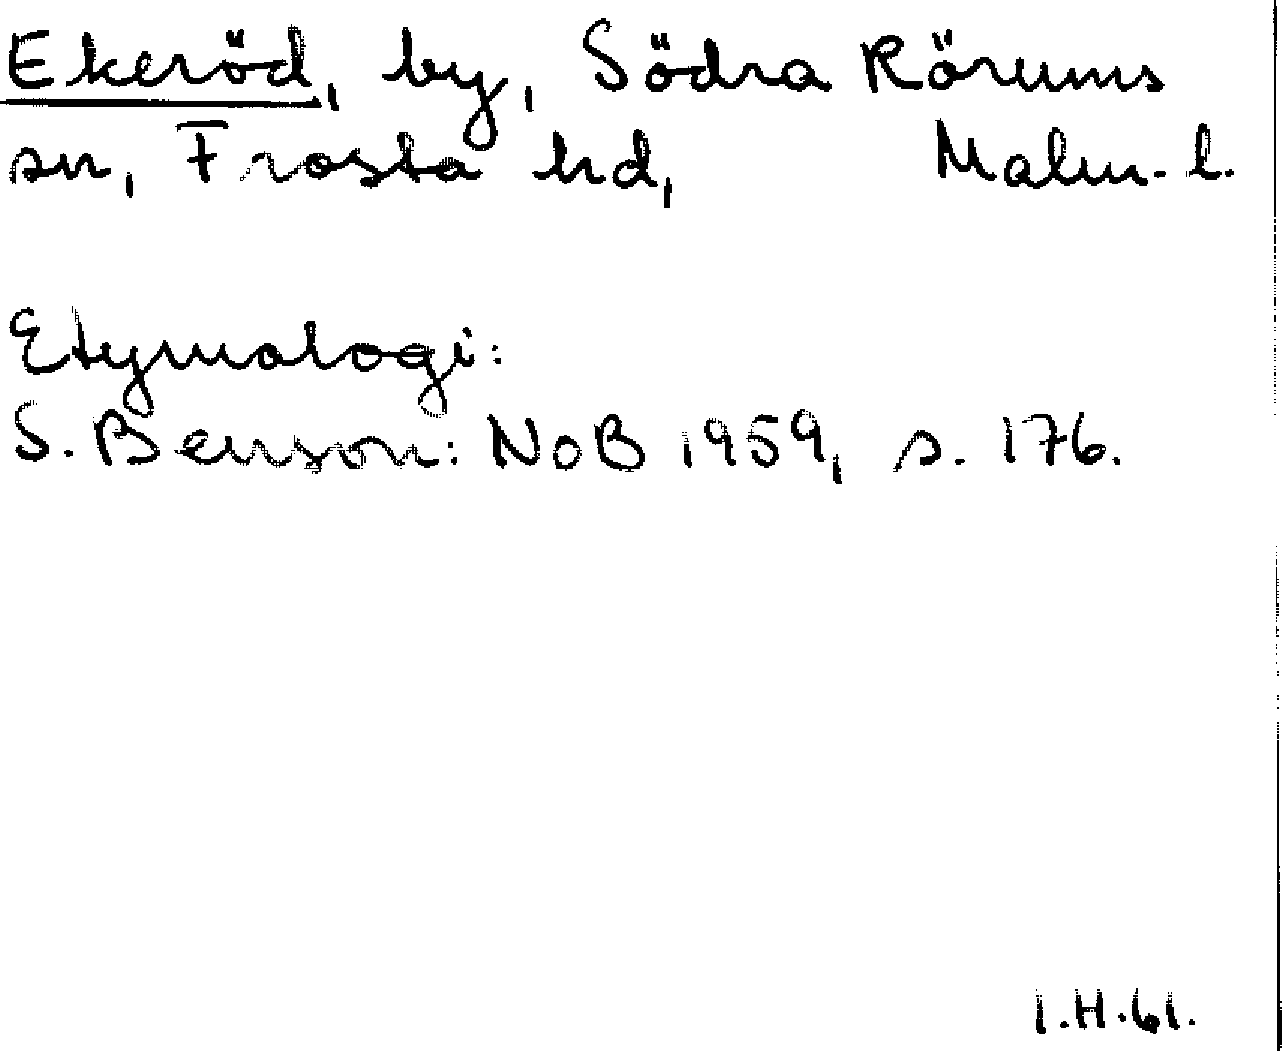 Ekeröd, by, Södra Rörums
sn, Frosta hd, Malm. l.
Etymologi:
S. Benson: NoB 1959, s. 176.
I.H.61.